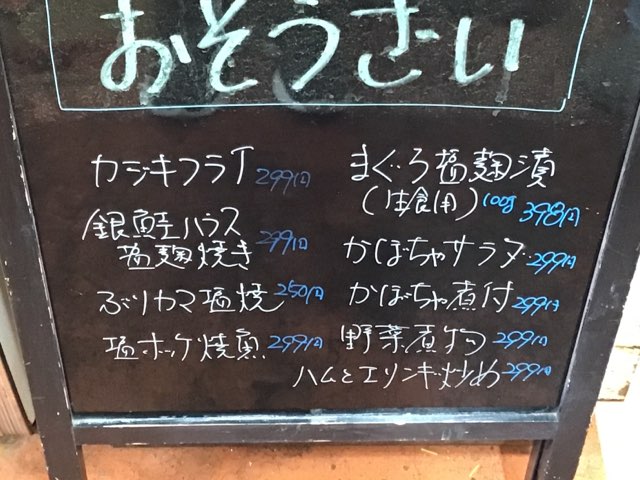 おそうざい
カジキフライ 299円
銀鮭ハラス
塩麹焼き 299円
ぶりカマ塩焼 250円
塩ホッケ焼魚 299円
まぐろ塩麹漬
(生食用) 100g 398円
かぼちゃサラダ 299円
かぼちゃ煮付 299円
野菜煮物 299円
ハムとエリンギ炒め 299円